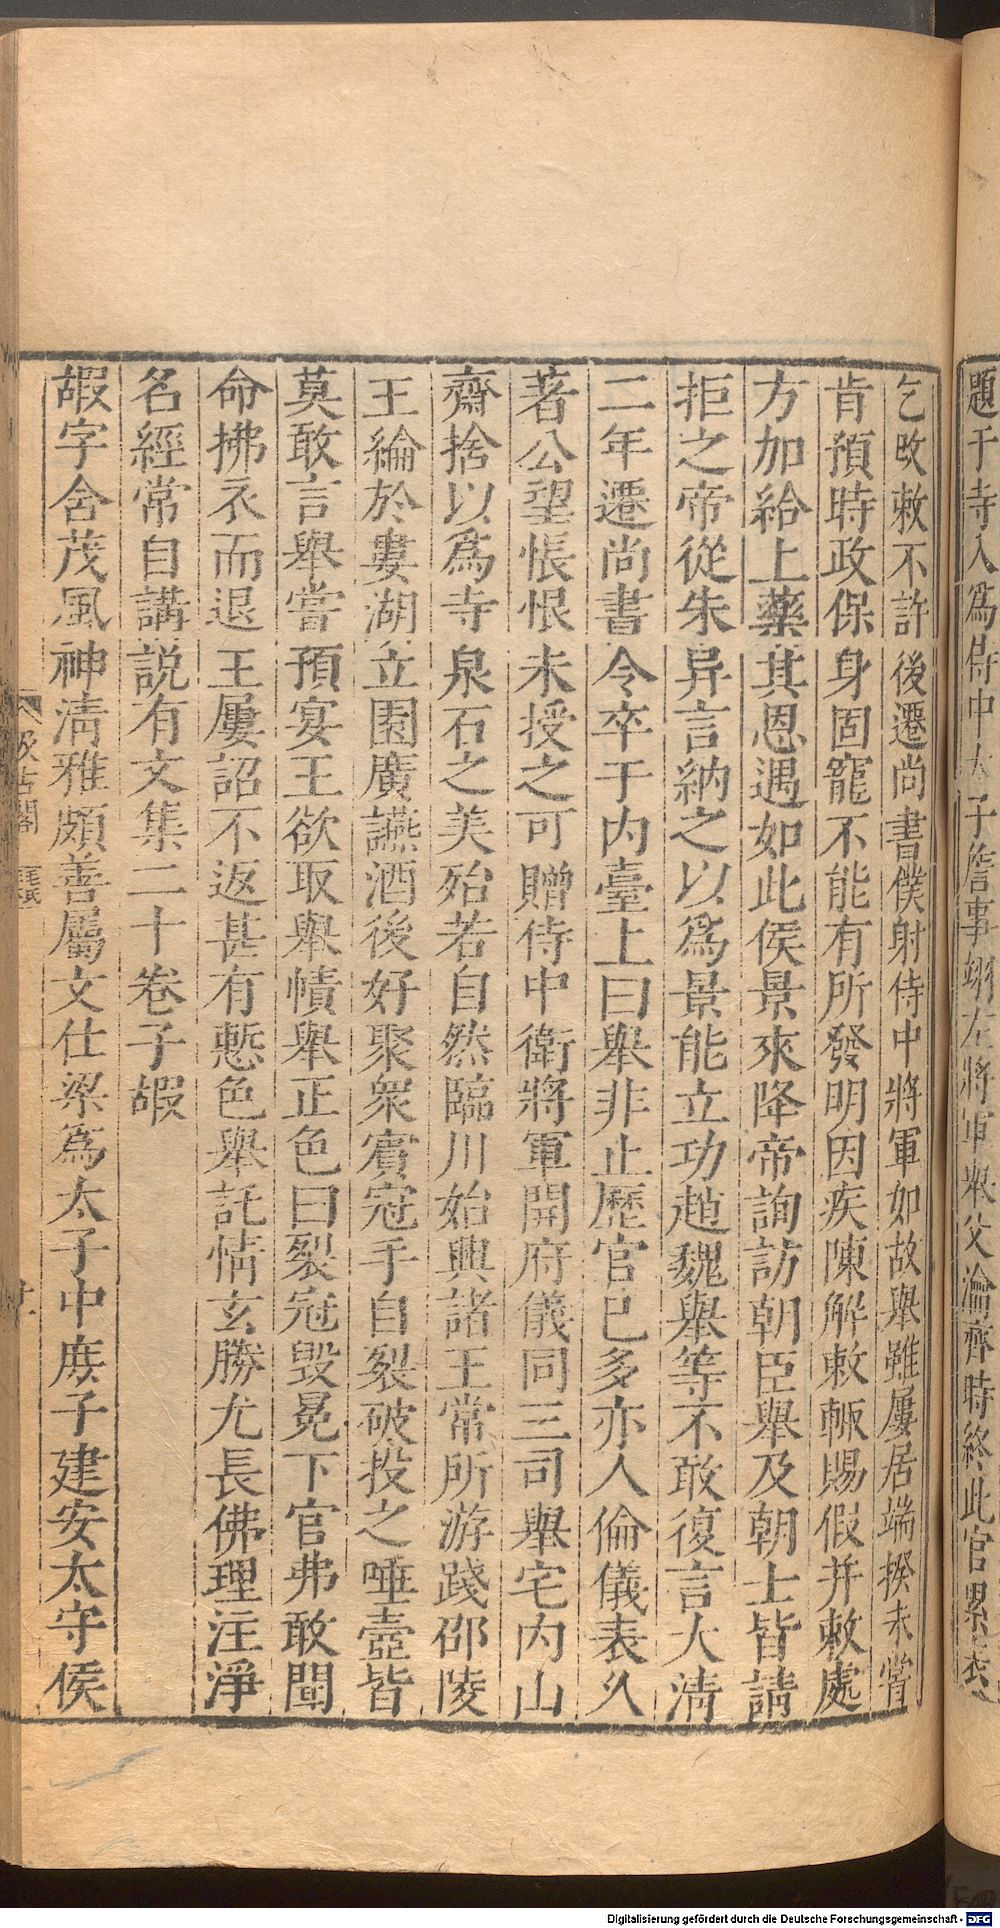 題于寺入爲侍中太子詹事翊左將軍舉父瀹齊時終此官累表
乞改敕不許後遷尚書僕射侍中將軍如故舉雖屢居端揆未嘗
肯預時政保身固寵不能有所發明因疾陳解敕輒賜假并敕處
方加給上藥其恩遇如此侯景來降帝詢訪朝臣舉及朝士皆請
拒之帝從朱异言納之以爲景能立功趙魏舉等不敢復言大淸
二年遷尚書令卒于内臺上曰舉非止歷官已多亦人倫儀表久
著公望悵恨未授之可贈侍中衛將軍開府儀同三司舉宅内山
齋捨以爲寺泉石之美殆若自然臨川始興諸王常所游踐邵陵
王綸於婁湖立園廣讌酒後好聚衆賓冠手自裂破投之唾壺皆
莫敢言舉嘗預宴王欲取舉幘舉正色曰裂冠毀冕下官弗敢聞
命拂衣而退王屢詔不返甚有慙色舉託情玄勝尤長佛理注淨
名經常自講説有文集二十卷子嘏
嘏字含茂風神淸雅頗善屬文仕梁爲太子中庶子建安太守侯
汲古閣
毛氏
Digitalisierung gefördert durch die Deutsche Forschungsgemeinschaft - DFG